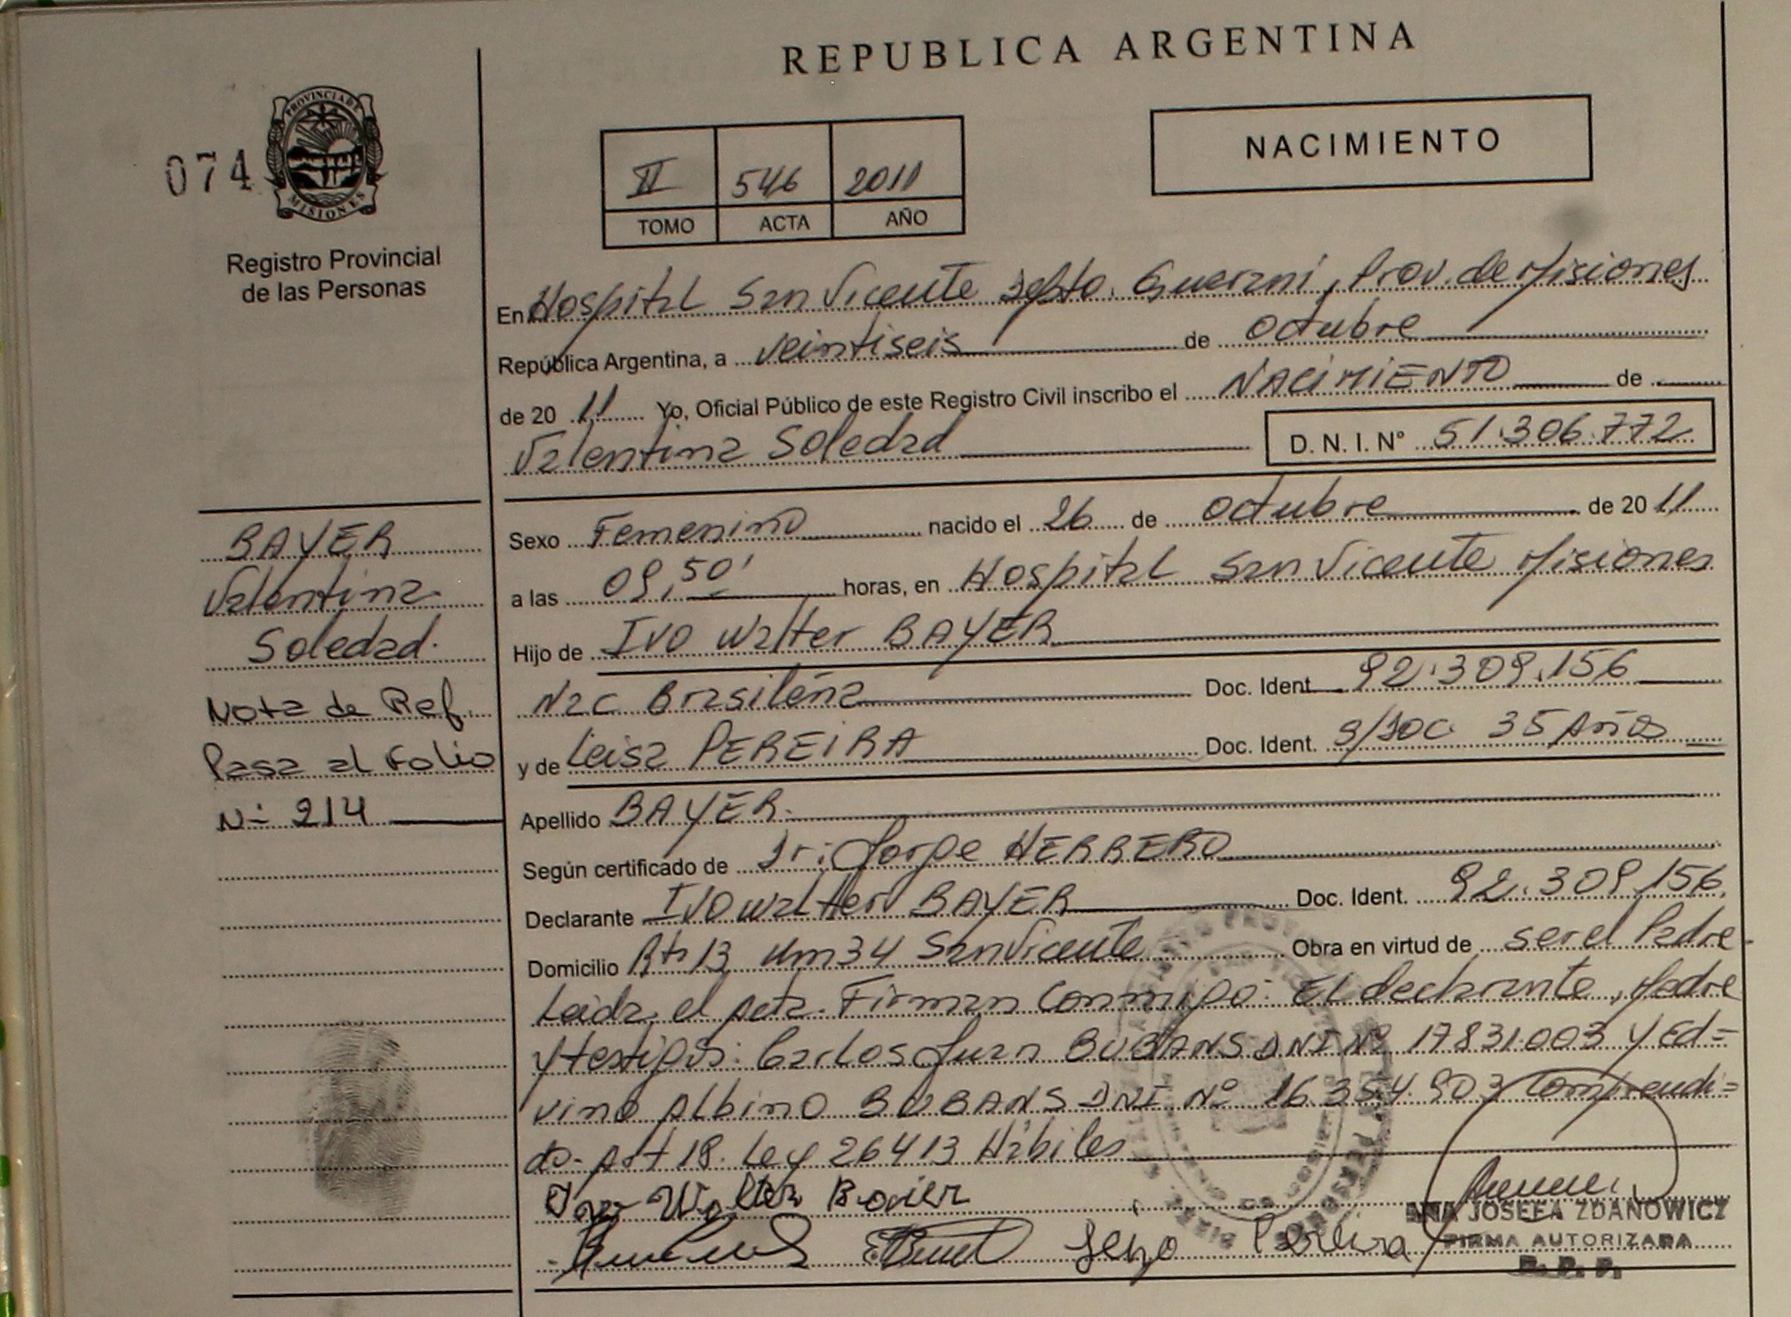 REPUBLICA ARGENTINA
074
PROVINCIA DE
MISIONES
Registro Provincial
de las Personas
II 546 2011
TOMO ACTA AÑO
NACIMIENTO
En Hospital San Vicente Dpto. Guarani, Prov. de Misiones
República Argentina, a veintiseis de octubre
de 20 11 Yo, Oficial Público de este Registro Civil inscribo el NACIMIENTO de
Valentina Soledad D. N. I. N° 51.306.772
Sexo Femenino nacido el 26 de octubre de 20 11
a las 09,50' horas, en Hospital San Vicente Misiones
Hijo de Ivo Walter BAYER
Nac Brasileña Doc. Ident. 92.309.156
y de Leisa PEREIRA Doc. Ident. S/DOC 35 Años
Apellido BAYER.
Según certificado de Dr: Jorge HERRERO
Declarante Ivo Walter BAYER Doc. Ident. 92.309.156
Domicilio Rta 13 Km 34 San Vicente Obra en virtud de ser el Padre
Leida, el acta. Firman conmigo: El declarante, Madre
y testigos: Carlos Juan BUBANS DNI Nº 17831.003 y Ed=
vino Albino BUBANS DNI. Nº 16.354.903 Comprendi=
do. Art 18. Ley 26413 Hábiles
BAYER
Valentina
Soledad.
Nota de Ref.
Pasa al Folio
N- 214
Walter
Pereira
ANA JOSEFA ZDANOWICZ
FIRMA AUTORIZADA
R. P. P.